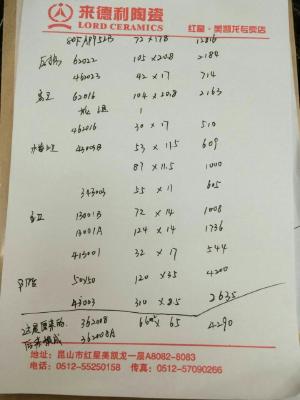 来德利陶瓷
LORD CERAMICS
红星·美凯龙专卖店
72 × 178 12816
62022 105 × 20.8 2184
462023 42 × 17 714
62016 104 × 20.8 2163
1
462016 30 × 17 510
43003B 53 × 11.5 609
87 × 11.5 1000
343003 55 × 11 605
13001B 72 × 14 1008
13001A 124 × 14 1736
413001 32 × 17 544
50×50 120 × 35 4200
43003 310 × 8.5 2635
362008 66m² × 65 4290
362008A
地址：昆山市红星美凯龙一层A8082-8083
电话：0512-55250158 传真：0512-57090266